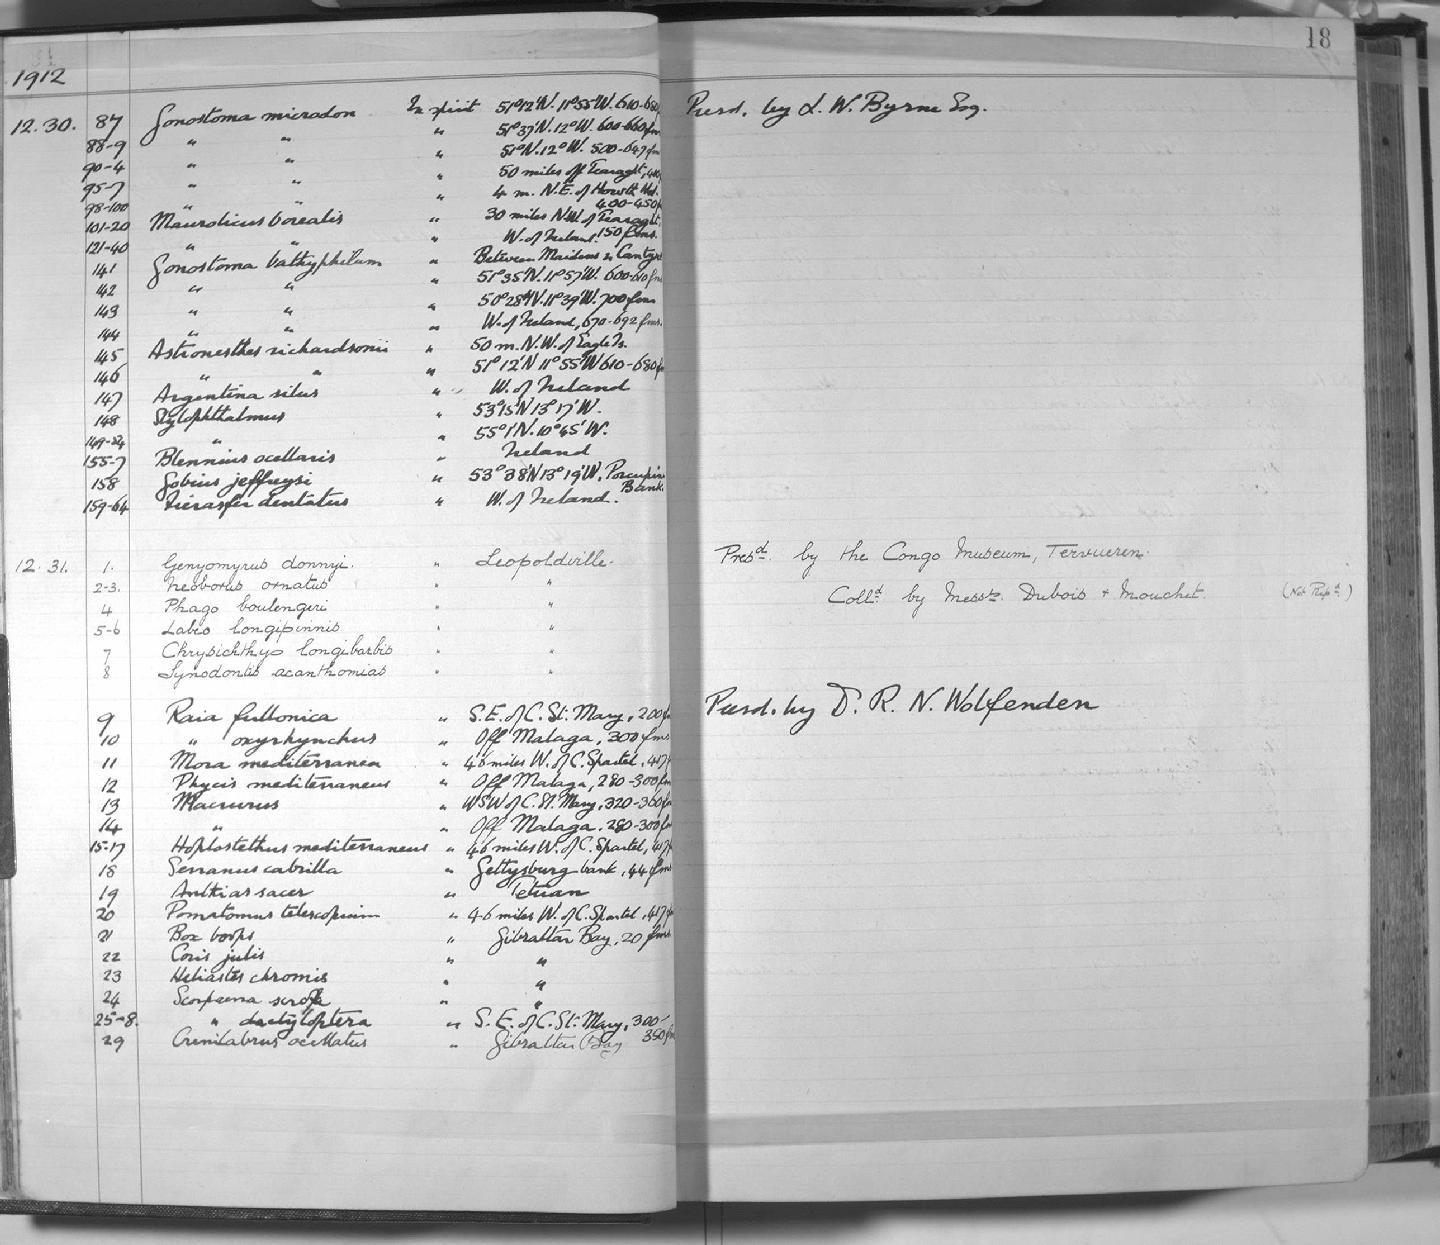 18
1912
12.30. 87 Gonostoma microdon In spirit 51°12'N. 11°55'W. 610-680 Pursd. by L. W. Byrne Esq.
88-9 " " " 51°37'N. 12°W. 600-660 fm
90-4 " " " 51°N. 12°W. 500-647 fm
95-7 " " " 50 miles off Tearaght,
98-100 " " " 4 m. N.E. of Howth Hd. 400-450
101-20 Mauroticus borealis " 30 miles N.W. of Tearaght,
121-40 " " " W. of Ireland. 150 fms.
141 Gonostoma bathyphilum " Between Maidens & Cantyre
42 " " " 51°35'N. 11°57'W. 600-610 fm
143 " " " 50°28'N. 11°39'W. 700 fms
144 " " " W. of Ireland, 670-692 fms.
145 Astronesthes richardsonii " 50 m. N.W. of Eagle Is.
146 " " " 51°12'N 11°55'W 610-680 f
147 Argentina silus " W. of Ireland
148 Stylophthalmus " 53°15'N 13°17'W.
149-54 " " 55°1'N. 10°45'W.
155-7 Blennius ocellaris " Ireland
158 Gobius jeffreysi " 53°38'N 13°19'W, Porcupine Bank.
159-64 Fierasfer dentatus " W. of Ireland.
12.31. 1. Genyomyrus donnyi. " Leopoldville. Presd. by the Congo Museum, Tervueren.
2-3. Neoborus ornatus " " Colld. by Messrs. Dubois + Mouchet. (Not Repd.)
4 Phago boulengeri " "
5-6 Labeo longipinnis " "
7 Chrysichthys longibarbis " "
8 Synodontis acanthomias " "
9 Raia fullonica " S.E. of C. St. Mary, 200 f Pursd. by D. R. N. Wolfenden
10 " oxyrhynchus " Off Malaga, 300 fms
11 Mora mediterranea " 46 miles W. of C. Spartel, 417 f
12 Phycis mediterraneus " Off Malaga, 280-300 fm
13 Macrurus " WSW of C. St. Mary, 320-360 fm
14 " " Off Malaga. 280-300 fm
15-17 Hoplostethus mediterraneus " 46 miles W. of C. Spartel, 417 f
18 Serranus cabrilla " Gettysburg bank, 44 fms
19 Anthias sacer " Tetuan
20 Pomatomus telescopium " 46 miles W. of C. Spartel, 417 fm
21 Box boops " Gibraltar Bay, 20 fms
22 Coris julis " "
23 Heliastes chromis " "
24 Scorpaena scrofa " "
25-8. " dactyloptera " S.E. of C. St. Mary, 300-350 fm
29 Crenilabrus ocellatus " Gibraltar Bay